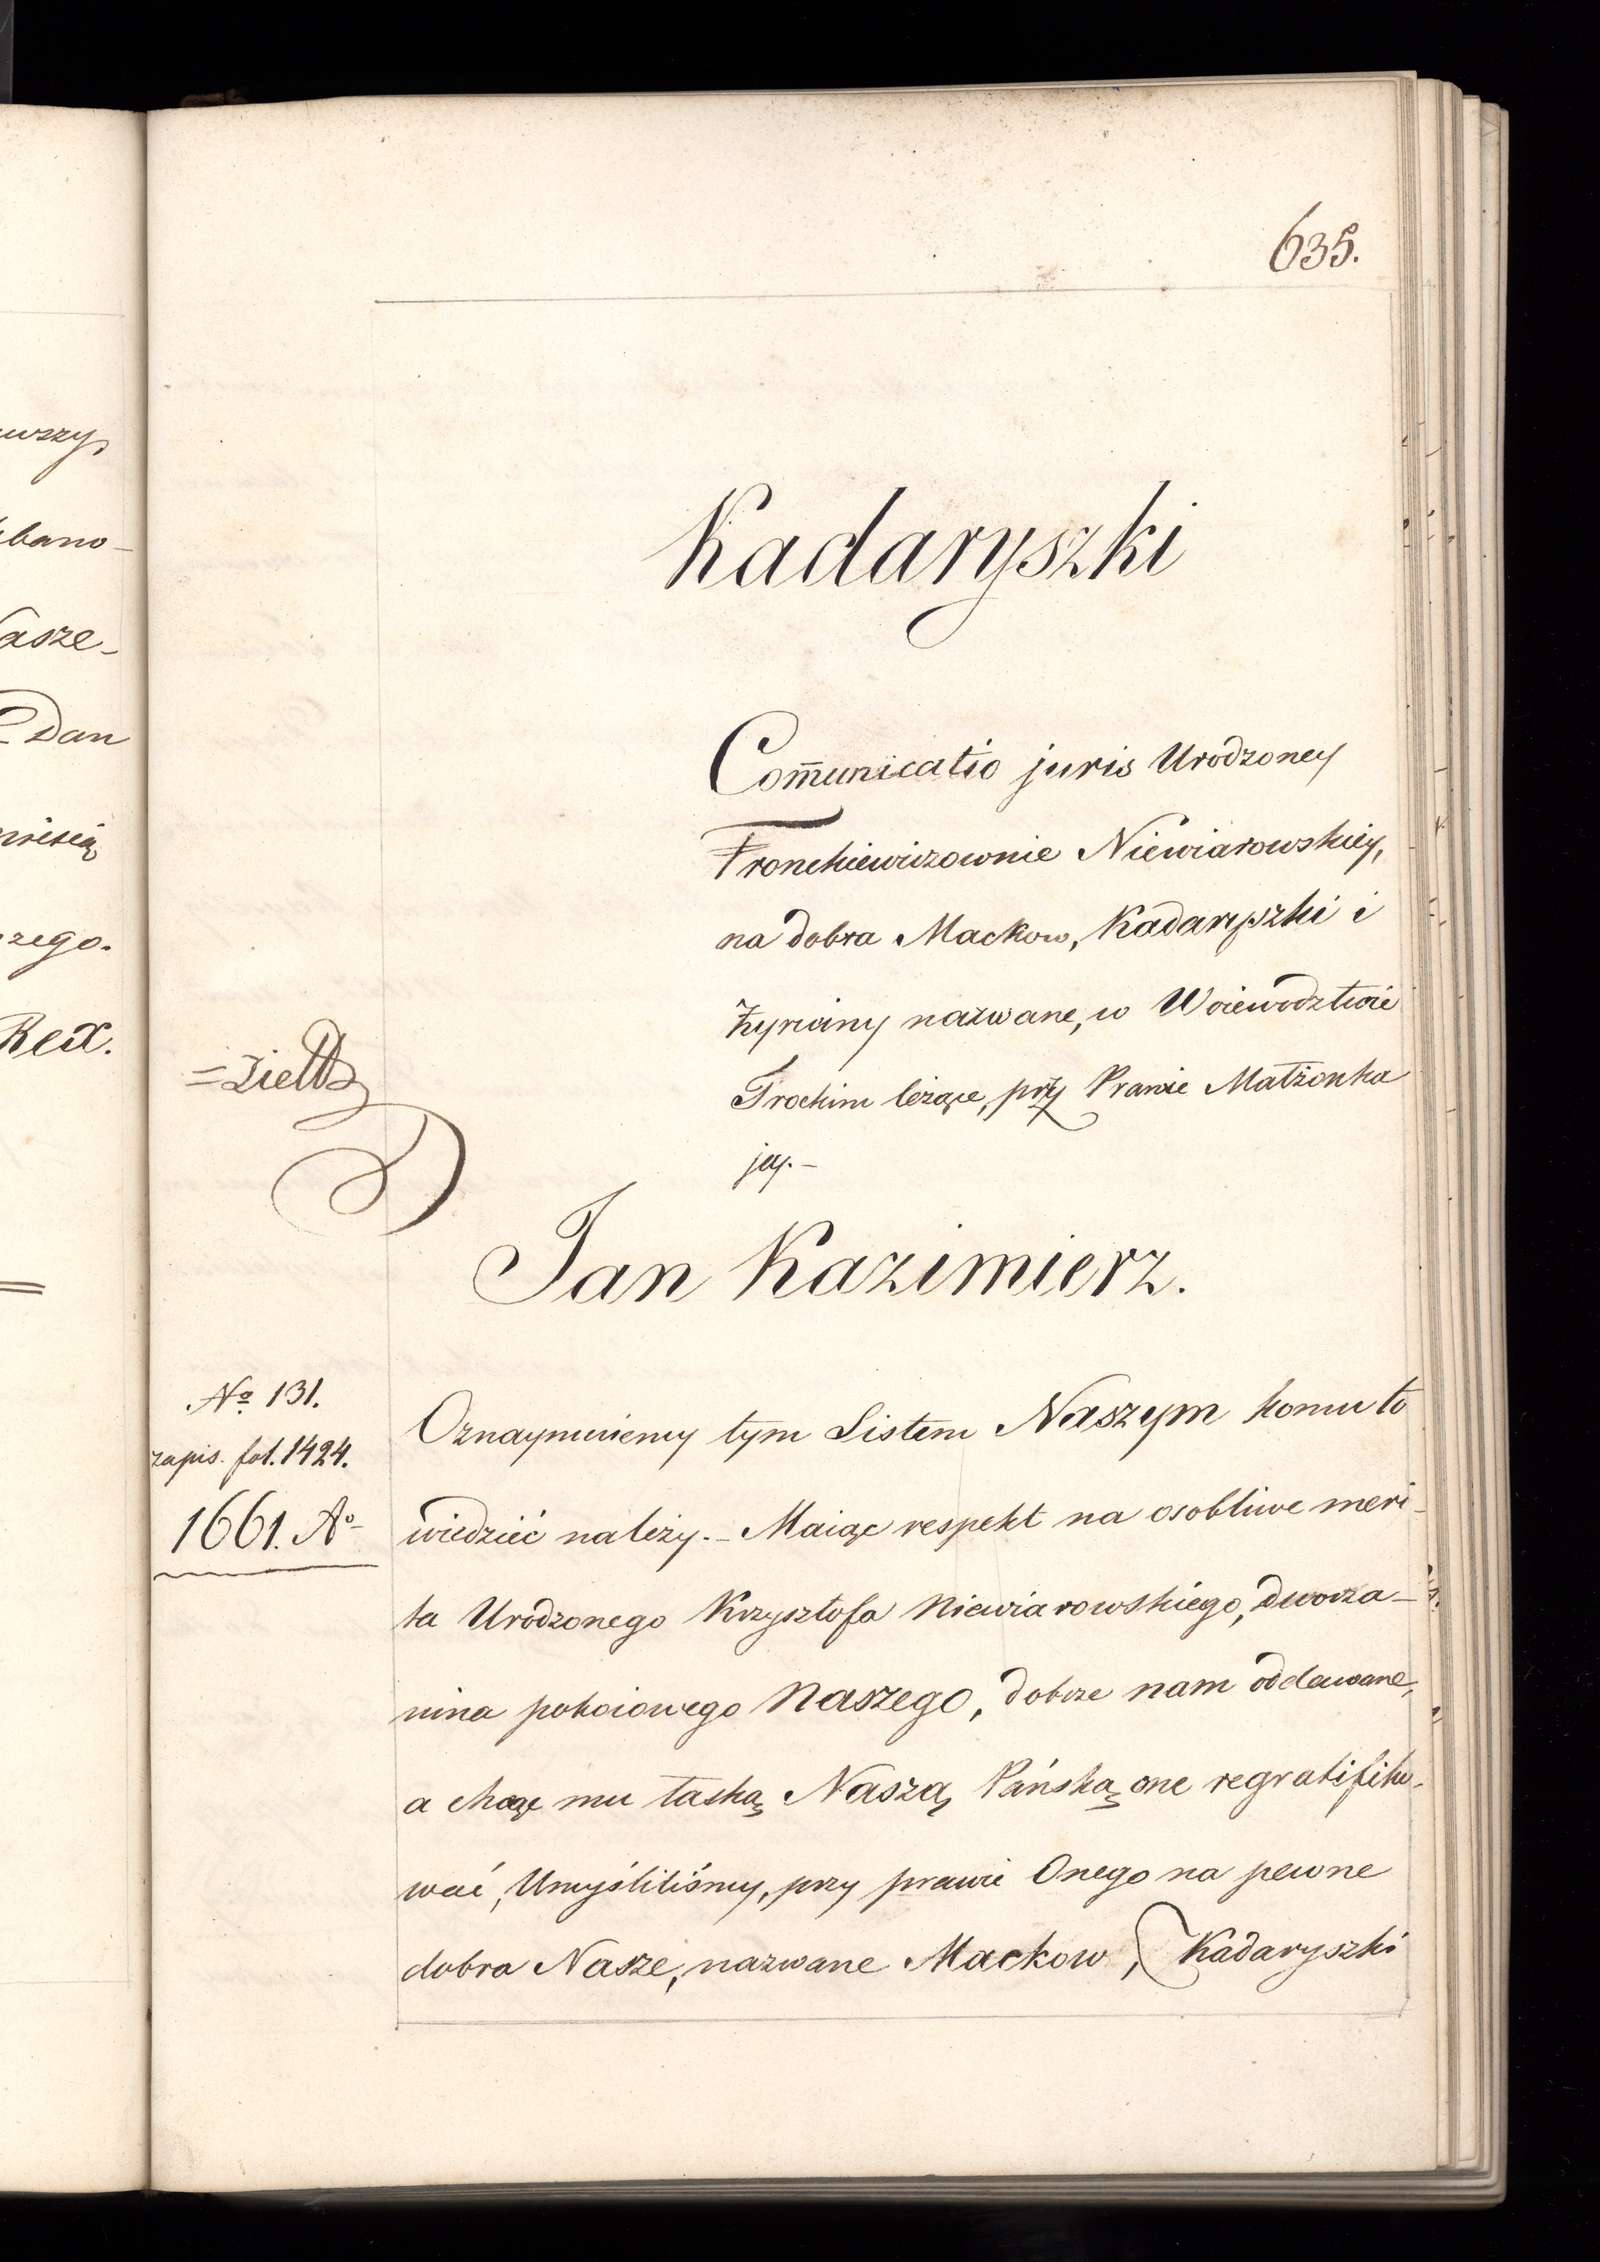 635.
Kadaryszki
Com̄unicatio juris Urodzoney
Fronckiewiczownie Niewiarowskiey,
na dobra Mackow, Kadaryszki i
Żyrwiny nazwane, w Woiewodztwie
Trockim leżące, przy Prawie Małżonka
jey.-
Jan Kazimierz.
No 131.
zapis. fol. 1424.
1661. Ao
Oznaymuiemy tym Listem Naszym komu to
wiedzieć należy.- Maiąc respekt na osobliwe meri-
ta Urodzonego Krzysztofa Niewiarowskiego, dworza-
nina pokoiowego Naszego, dobrze nam oddawane,
a chcąc mu łaską Naszą Pańską one regratifiko-
wać, Umyśliliśmy, przy prawie Onego na pewne
dobra Nasze, nazwane Mackow, Kadaryszki
wszy,
bano-
asze-
Dan
zego.
Rex.